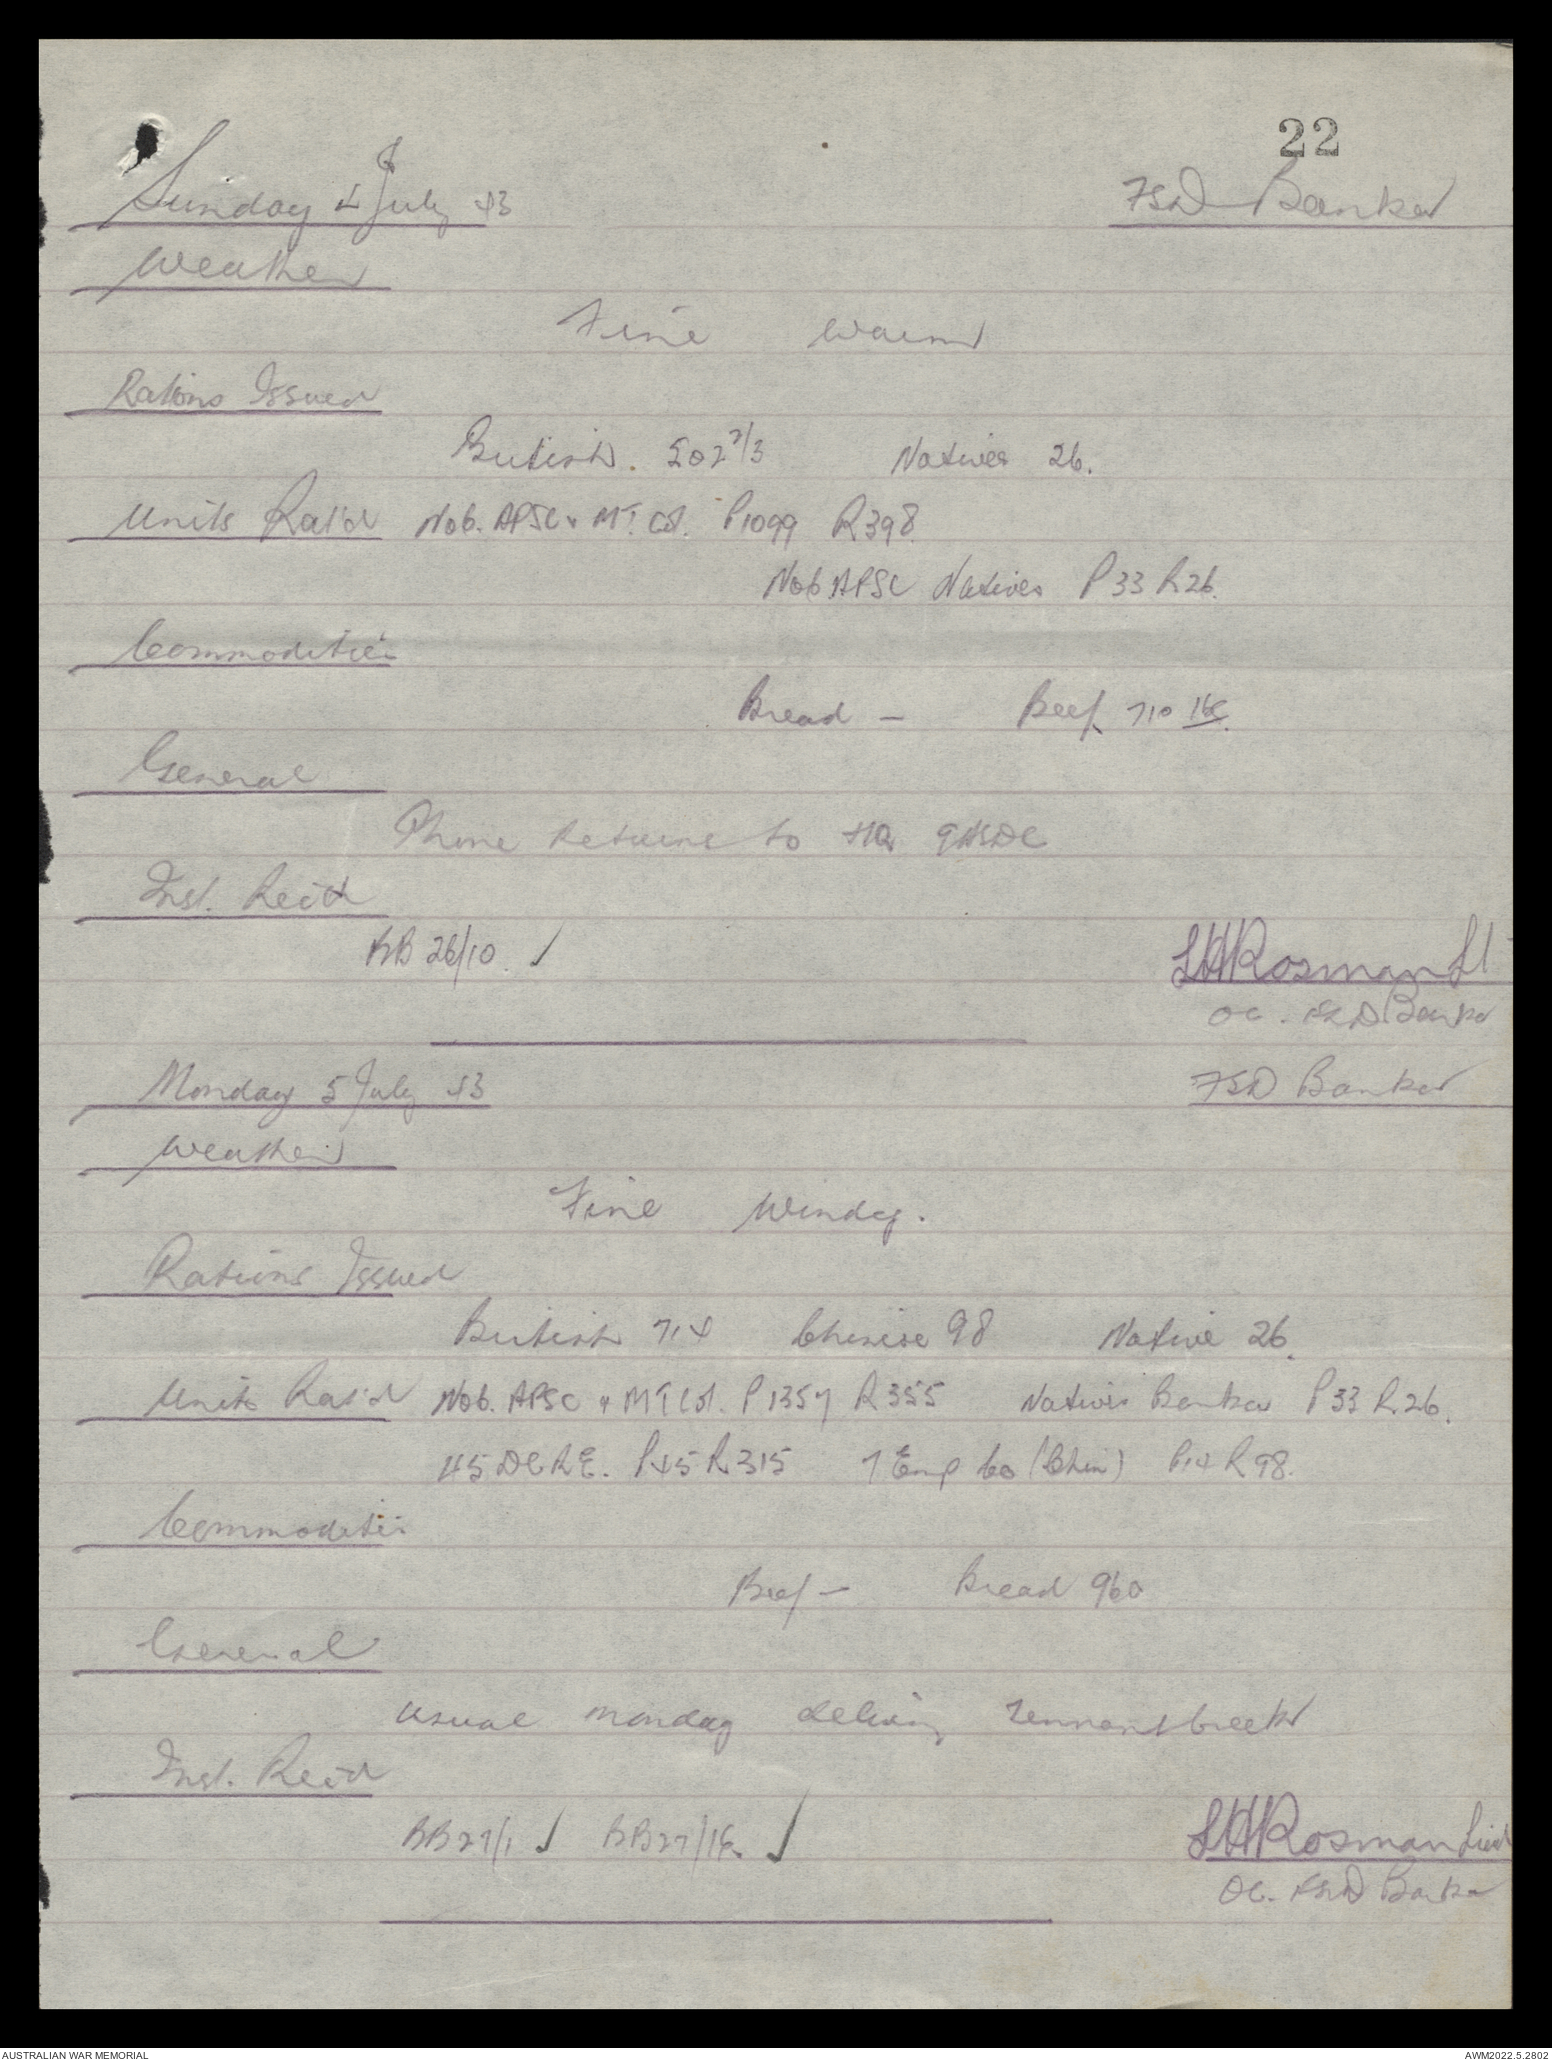 22
Sunday 4 July 43 FSD Banka
Weather
Fine Warm
Rations Issued
British. 502 2/3 Natives 26.
Units Rat'd No6. APSC & MT. Col. P1099 R398
No6 APSC Natives P 33 R 26.
Commodities
Bread - Beef 710 lbs.
General
Phone Returns to HQ
Inst. Rec'd
BB 26/10 ✓
LHRosman Lt
OC. FSD Banka
Monday 5 July 43 FSD Banka
Weather
Fine Windy.
Rations Issued
British 714 Chinese 98 Native 26.
Units Rat'd No6. APSC & MT Col. P 1357 R 355 Natives Banka P 33 R.26.
45 DCRE. P45 R 315 7 Emp Co (Chin) P14 R 98.
Commodities
Beef - Bread 960
General
Usual monday delivery Tennant Creek
Inst. Rec'd
BB27/1 ✓ BB27/16. ✓
LHRosman Lieut
OC. FSD Banka
AUSTRALIAN WAR MEMORIAL AWM2022.5.2802